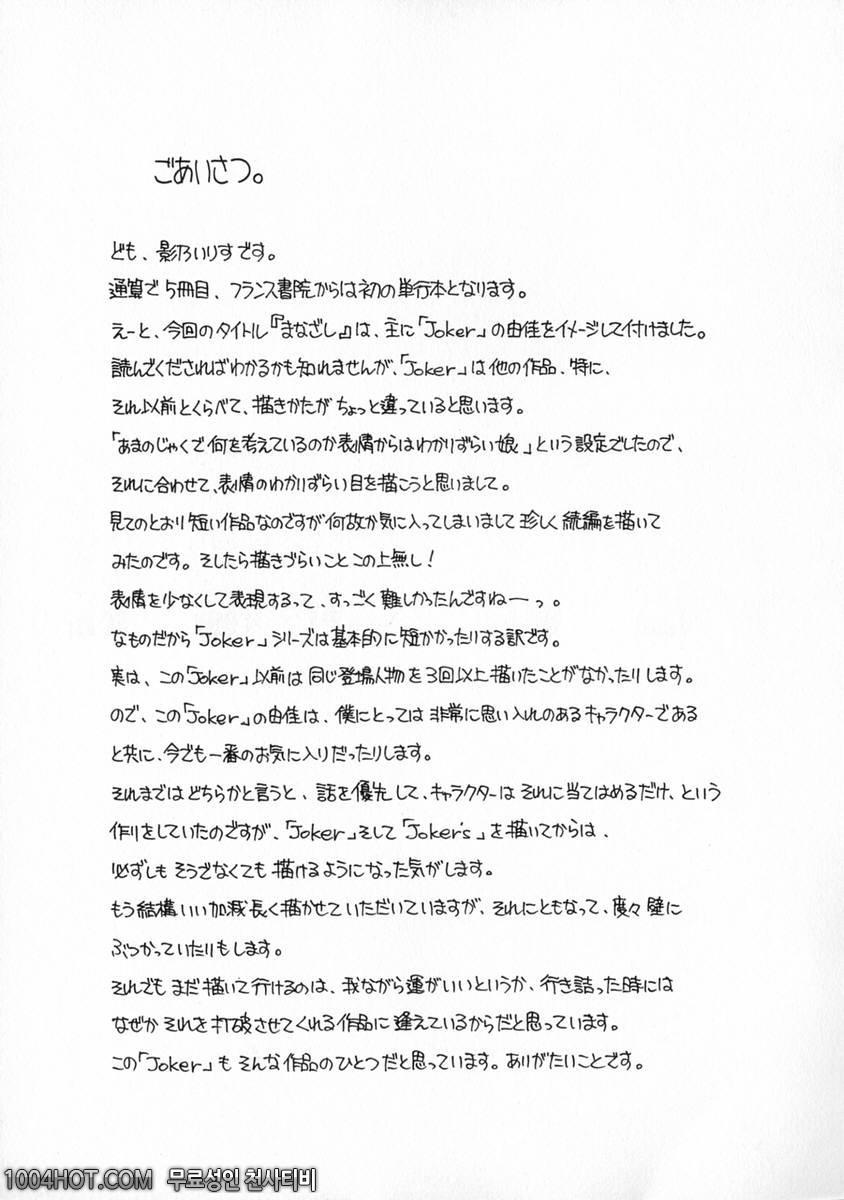 ごあいさつ。
ども、影乃いりすです。
通算で5冊目、フランス書院からは初の単行本となります。
えーと、今回のタイトル『まなざし』は、主に「Joker」の由佳をイメージして付けました。
読んでくださればわかるかも知れませんが、「Joker」は他の作品、特に、
それ以前とくらべて、描きかたがちょっと違っていると思います。
「あまのじゃくで何を考えているのか表情からはわかりずらい娘」という設定でしたので、
それに合わせて、表情のわかりずらい目を描こうと思いまして。
見てのとおり短い作品なのですが何故か気に入ってしまいまして珍しく続編を描いて
みたのです。そしたら描きづらいことこの上無し!
表情を少なくして表現するって、すっごく難しかったんですねーっ。
なものだから「Joker」シリーズは基本的に短かかったりする訳です。
実は、この「Joker」以前は同じ登場人物を3回以上描いたことがなかったりします。
ので、この「Joker」の由佳は、僕にとっては非常に思い入れのあるキャラクターである
と共に、今でも一番のお気に入りだったりします。
それまではどちらかと言うと、話を優先して、キャラクターはそれに当てはめるだけ、という
作りをしていたのですが、「Joker」そして「Joker's」を描いてからは、
必ずしもそうでなくても描けるようになった気がします。
もう結構いい加減長く描かせていただいていますが、それにともなって、度々壁に
ぶつかっていたりもします。
それでもまだ描いて行けるのは、我ながら運がいいというか、行き詰った時には
なぜかそれを打破させてくれる作品に逢えているからだと思っています。
この「Joker」もそんな作品のひとつだと思っています。ありがたいことです。
1004HOT.COM 무료성인 천사티비